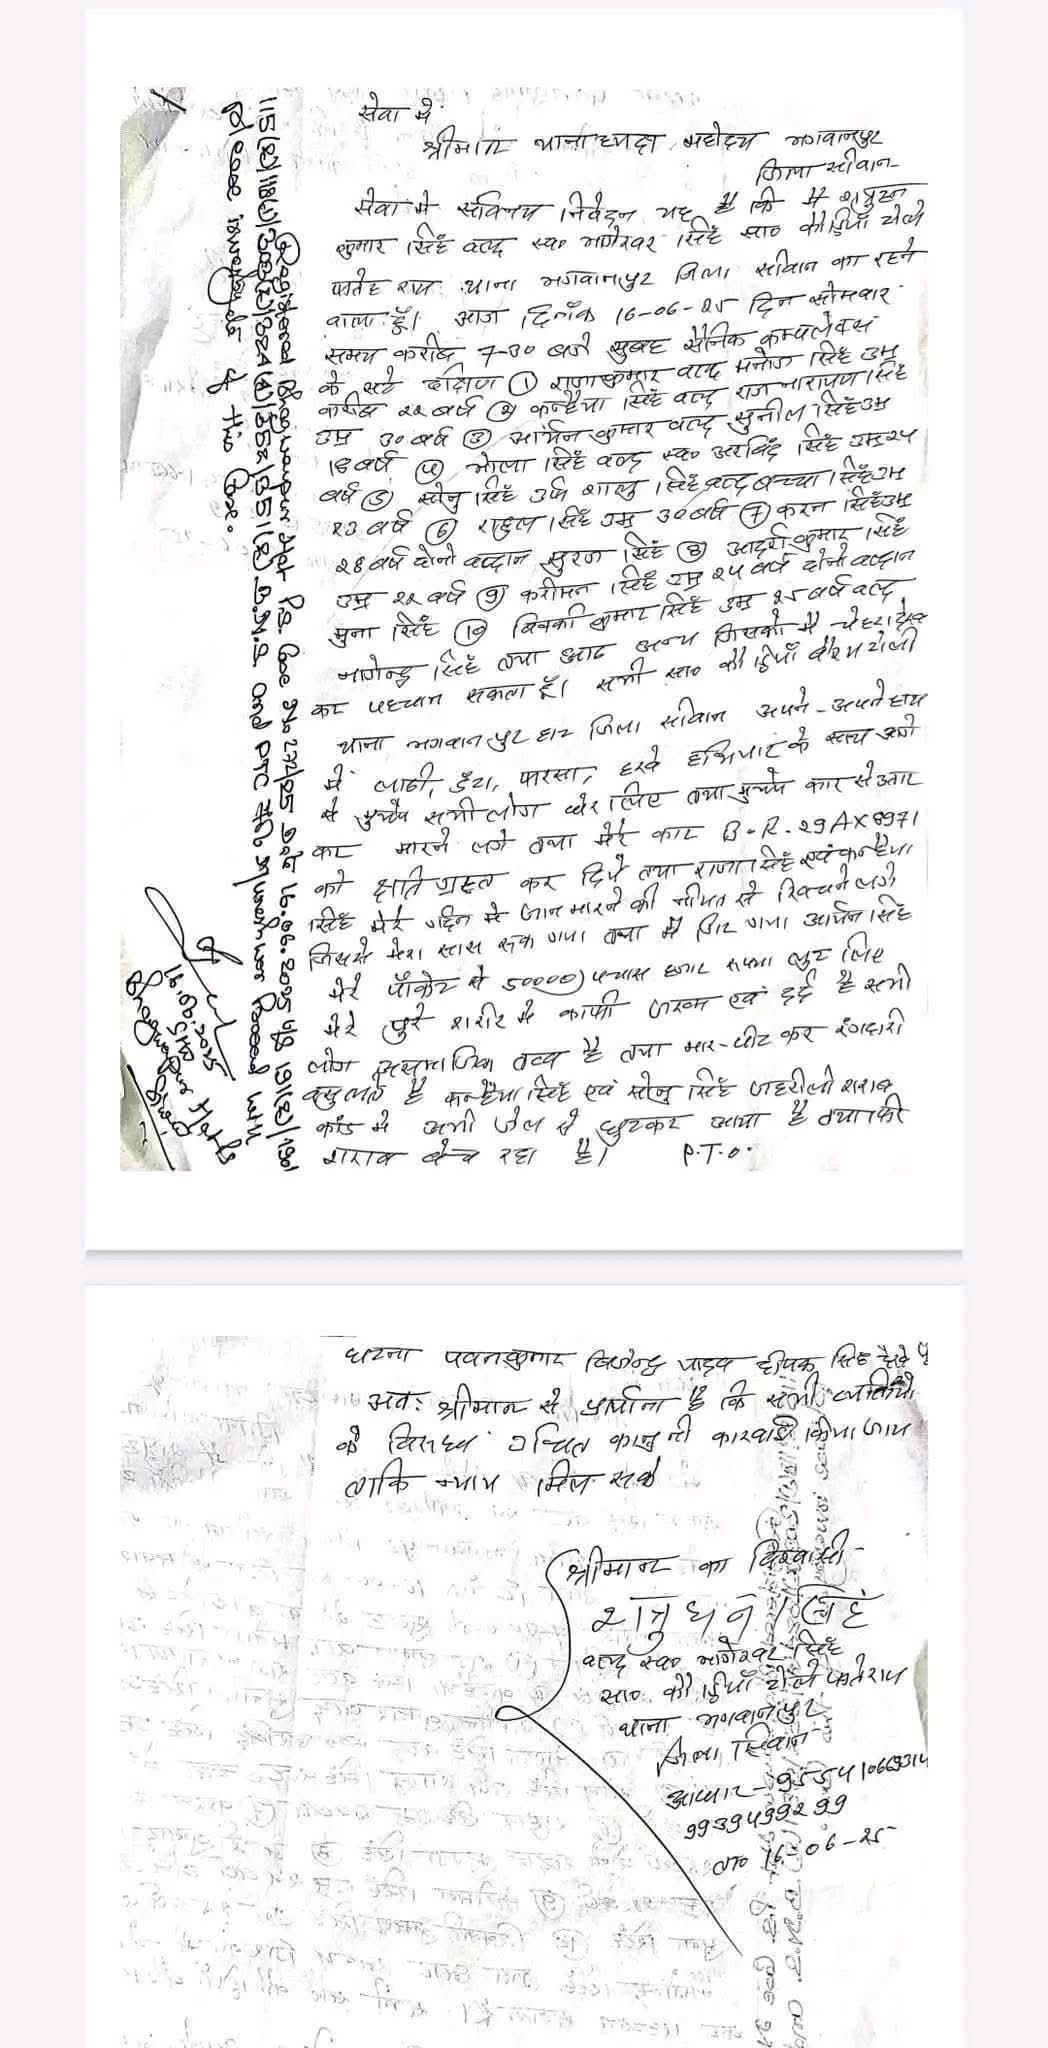 सेवा में
श्रीमान थानाध्यक्ष महोदय भगवानपुर
जिला सीवान-
सेवा में सविनय निवेदन यह है कि मैं शत्रुघ्न
कुमार सिंह वल्द स्व० नागेश्वर सिंह सा० कौड़ियाँ टोले
फतेह राय थाना भगवानपुर जिला सीवान का रहने
वाला हूँ। आज दिनाँक 16-06-25 दिन सोमवार
समय करीब 7-30 बजे सुबह सैनिक कम्पलेक्स
के सटे दक्षिण ① राजाकुमार वल्द मनोज सिंह उम्र
करीब 22 वर्ष ② कन्हैया सिंह वल्द राज नारायण सिंह
उम्र 30 वर्ष ③ आर्यन कुमार वल्द सुनील सिंह उम्र
18 वर्ष ④ भोला सिंह वल्द स्व० अरविंद सिंह उम्र 25
वर्ष ⑤ सोनु सिंह उर्फ शालु सिंह वल्द बच्चा सिंह उम्र
23 वर्ष ⑥ राहुल सिंह उम्र 30 वर्ष ⑦ करन सिंह उम्र
28 वर्ष दोनो वल्दान सुरज सिंह ⑧ आदर्श कुमार सिंह
उम्र 22 वर्ष ⑨ करीमन सिंह उम्र 24 वर्ष दोनो वल्दान
मुना सिंह ⑩ विक्की कुमार सिंह उम्र 25 वर्ष वल्द
नागेन्द्र सिंह तथा आठ अन्य जिसको मै चेहरा देख
कर पहचान सकता हूँ। सभी सा० कौड़ियाँ टोली
थाना भगवानपुर हाट जिला सीवान अपने-अपने हाथ
में लाठी, डंटा, फारसा, हरवे हथियार के साथ आगे
से मुझे सभी लोग घेर लिए तथा मुझे कार से उतार
कर मारने लगे तथा मेरे कार B.R.29AX8971
को क्षतिग्रस्त कर दिये तथा राजा सिंह एवं कन्हैया
सिंह मेरे गर्दन में जान मारने की नीयत से खिचने लगे
जिससे मेरा सास रूक गया तथा मैं गिर गया आर्यन सिंह
मेरे पाँकेट से 50000) पचास हजार रूपया लुट लिए
मेरे पुरे शरीर मे काफी जख्म एवं दर्द है सभी
लोग असमाजिक तत्व है तथा मार-पीट कर रंगदारी
वसुलते है कन्हैया सिंह एवं सोनु सिंह जहरीली शराब
कांड मे अभी जेल से छुटकर आया है तथा फिर
शराब बेच रहा है। P.T.O.
Registered Bhagwanpur Hat P.S. Case No 272/25 Date 16.06.2025 U/S
115(2)/118(1)/ B.N.S and
please investigate of this Case.
16.06.25
घटना पवन कुमार बिजेन्द्र यादव दीपक सिंह देखे
अतः श्रीमान से प्रार्थना है कि सभी व्यक्तियो
के विरूध्य उचित कानुनी कारवाई किया जाय
ताकि न्याय मिल सके
श्रीमान का विश्वासी-
शत्रुधन सिंह
वल्द स्व० नागेश्वर सिंह
सा० कौड़ियाँ टोले फतेराय
थाना भगवानपुर
जिला सिवान
आधार-955410669314
9939499299
ता० 16-06-25